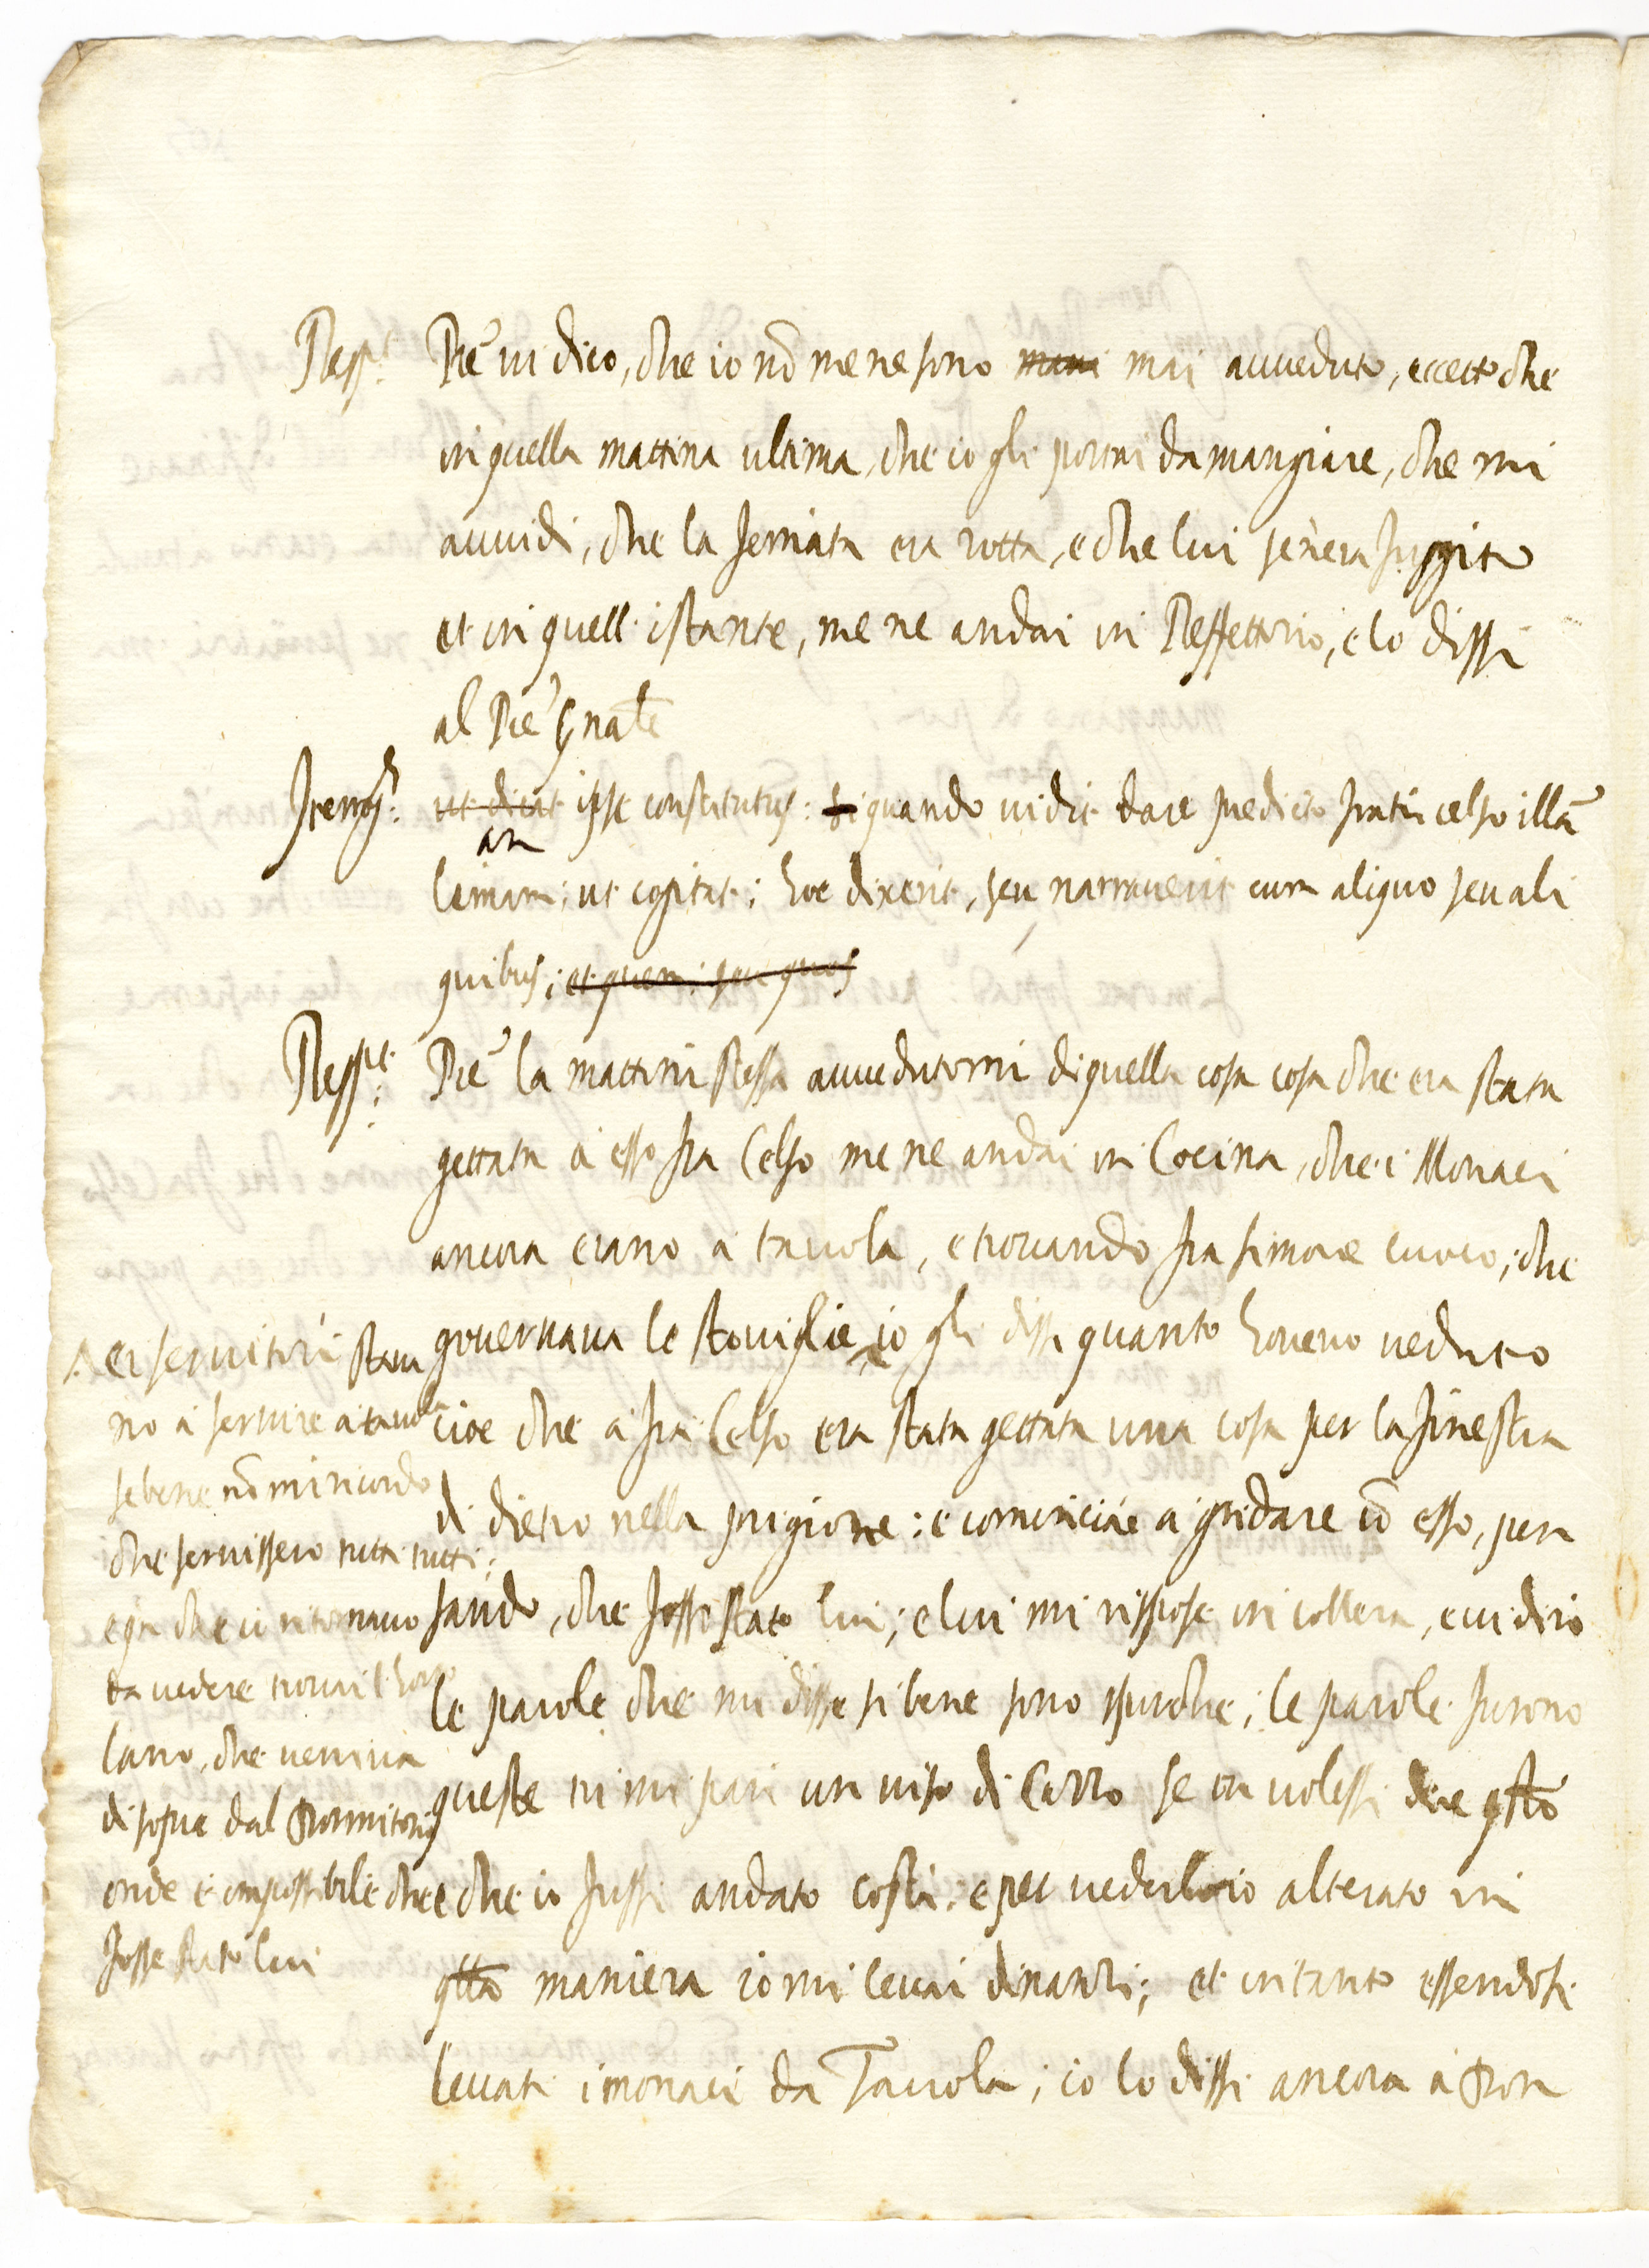 Resp.^t Pre' vi dico, che io nō me ne sono mani mai avveduto, eccetto che
in quella mattina ultima, che io gli portai da mangiare, che mi
avvidi, che la ferriata era rotta, e che lui se n'era fuggito
et in quell'istante, me ne andai in Reffettorio, e lo dissi
al Pre'
Interrog.^s ut dicat ipse constitutus: si quando vidit dare predicto fratri celso illā
an
limam; ut cogitat; hoc dixerit, seu narraverit cum aliquo seu ali
quibus; et quem: seu quos
Resp.^t Pre' la mattina stessa avvedutomi di quella cosa cosa che era stata
gettata à esso fra Celso me ne andai in Cocina, che i Monaci
ancora erano a tavola, e trovando fra simone cuoco, che
governava le stoviglie io gli dissi quanto havevo veduto
cioe che à fra Celso era stata gettata una cosa per la finestra
di dietro nella prigione: e cominciai a gridare cō esso, pen
sando, che fosse stato lui; e lui mi rispose in collera, e vi dirò
le parole che mi disse si bene sono sporche; le parole furono
queste tu mi pari un viso di Cazzo se tu volessi dire q̄sto
e che io fussi andato costì: e per vederlo io alterato in
q̄tta maniera io mi levai dinanzi; et in tanto essendosi
levati i monaci da Tavola; io lo dissi ancora à Don
e i servitori stava
no à servire à tavola
se bene nō mi ricordo
che servissero tutti tutti;
e qn che vi ritornavo
da vedere trovai l'horto
lano, che veniva
di sopra dal Dormitorio
onde è impossibile che
fosse stato lui